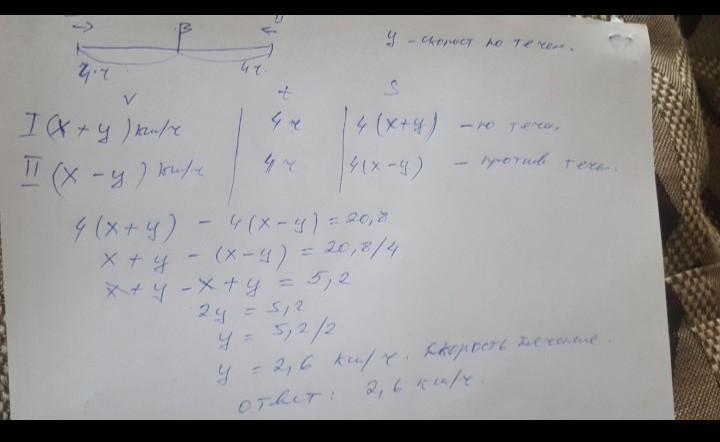 B
y - скорост по течен.
4 ч 4ч.
v t S
I (x + y) км/ч 4 ч 4 (x+y) - по течен.
II (x - y) км/ч 4 ч 4(x-y) - против течен.
4(x+y) - 4(x-y) = 20,8
x + y - (x-y) = 20,8/4
x+y - x + y = 5,2
2y = 5,2
y = 5,2/2
y = 2,6 км/ч. скорость течения.
ответ: 2,6 км/ч.